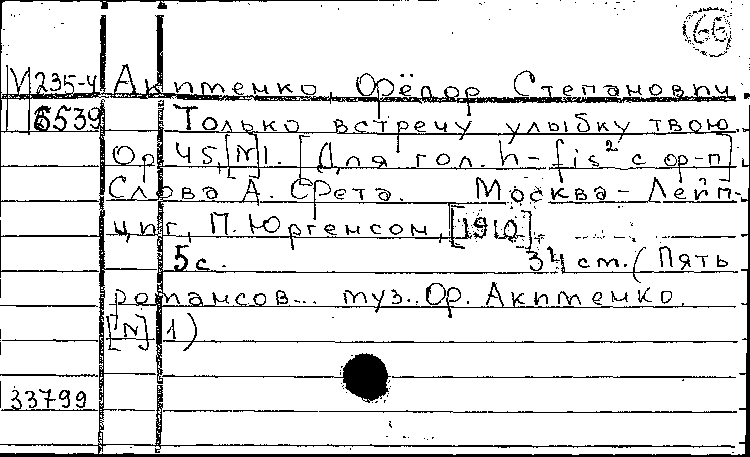 66
М 235-4 Акименко, Фёдор Степанович.
6539 Только встречу улыбку твою.
Op. 45, [N] 1. [Для гол. h-fis² с ф-п].
Слова А. Фета. Москва - Лейп-
циг, П. Юргенсон, [1910].
5 с. 34 см. (Пять
романсов... муз. Ф. Акименко.
[N] 1)
33799